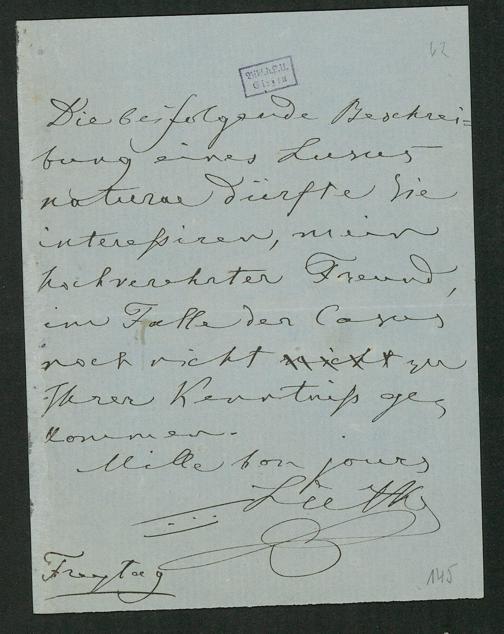 62
Die beifolgende Beschrei=
bung eines Lusus
naturae dürfte Sie
interessiren, mein
hochverehrter Freund,
im Falle der Casus
noch nicht nicht zu
Ihrer Kenntniß ge,
kommen.
Mille bon jours
Freytag
145